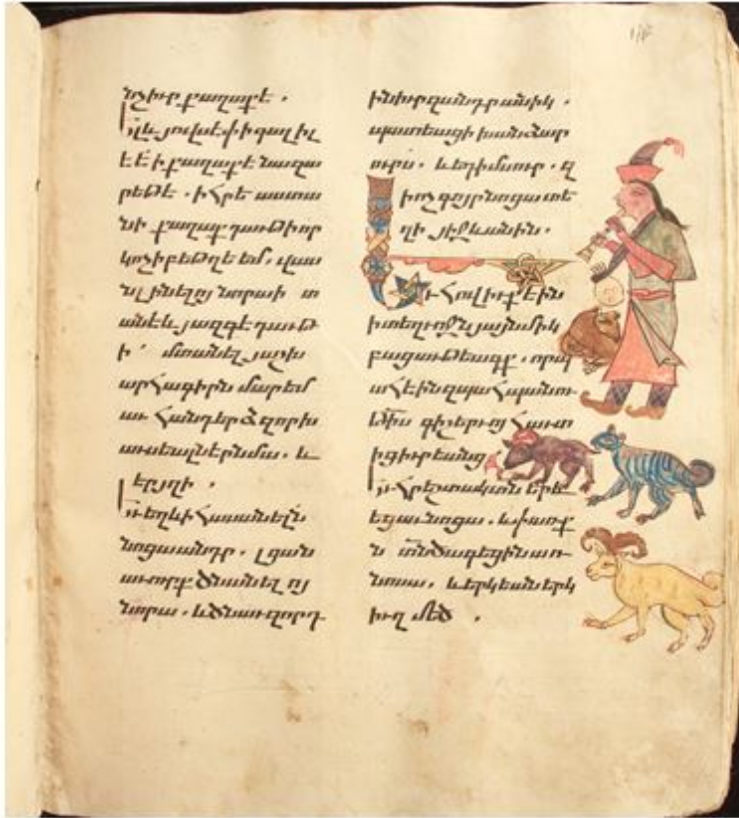 նչիւր քաղաքէ .
Ել և յովսէփ ի գալիլ
էէ ի քաղաքէ նազա
րեթէ . ի հրէաստա
նի քաղաք դաւթի որ
կոչի բեթղեէմ . վաս
ն լինելոյ նորա ի տ
անէ և յազգէ դաւթ
ի ՝ մտանել յաշխ
արհագիրն մարեմ
աւ հանդերձ զոր խ
աւսեալն էր նմա . և
էր յղի .
Եւ եղև ի հասանելն
նոցա անդր . լցան
աւուրք ծնանելոյ
նորա . և ծնաւ զորդ
ին իւր զանդրանիկ .
պատեաց ի խանձար
ուրս . և եդ ի մսուր . զ
ի ոչ գոյր նոցա տե
ղի յիջևանին .
Եւ հովիւք էին
ի տեղւոջն յայնմիկ
բացաւթեագք . որք
պահէին զպահպանու
թիւնս գիշերոյ հաւտ
ից իւրեանց
Եւ հրեշտակ տն երև
եցաւ նոցա . և փառք
տն ծագեցին առ
նոսա . և երկեան երկ
իւղ մեծ .